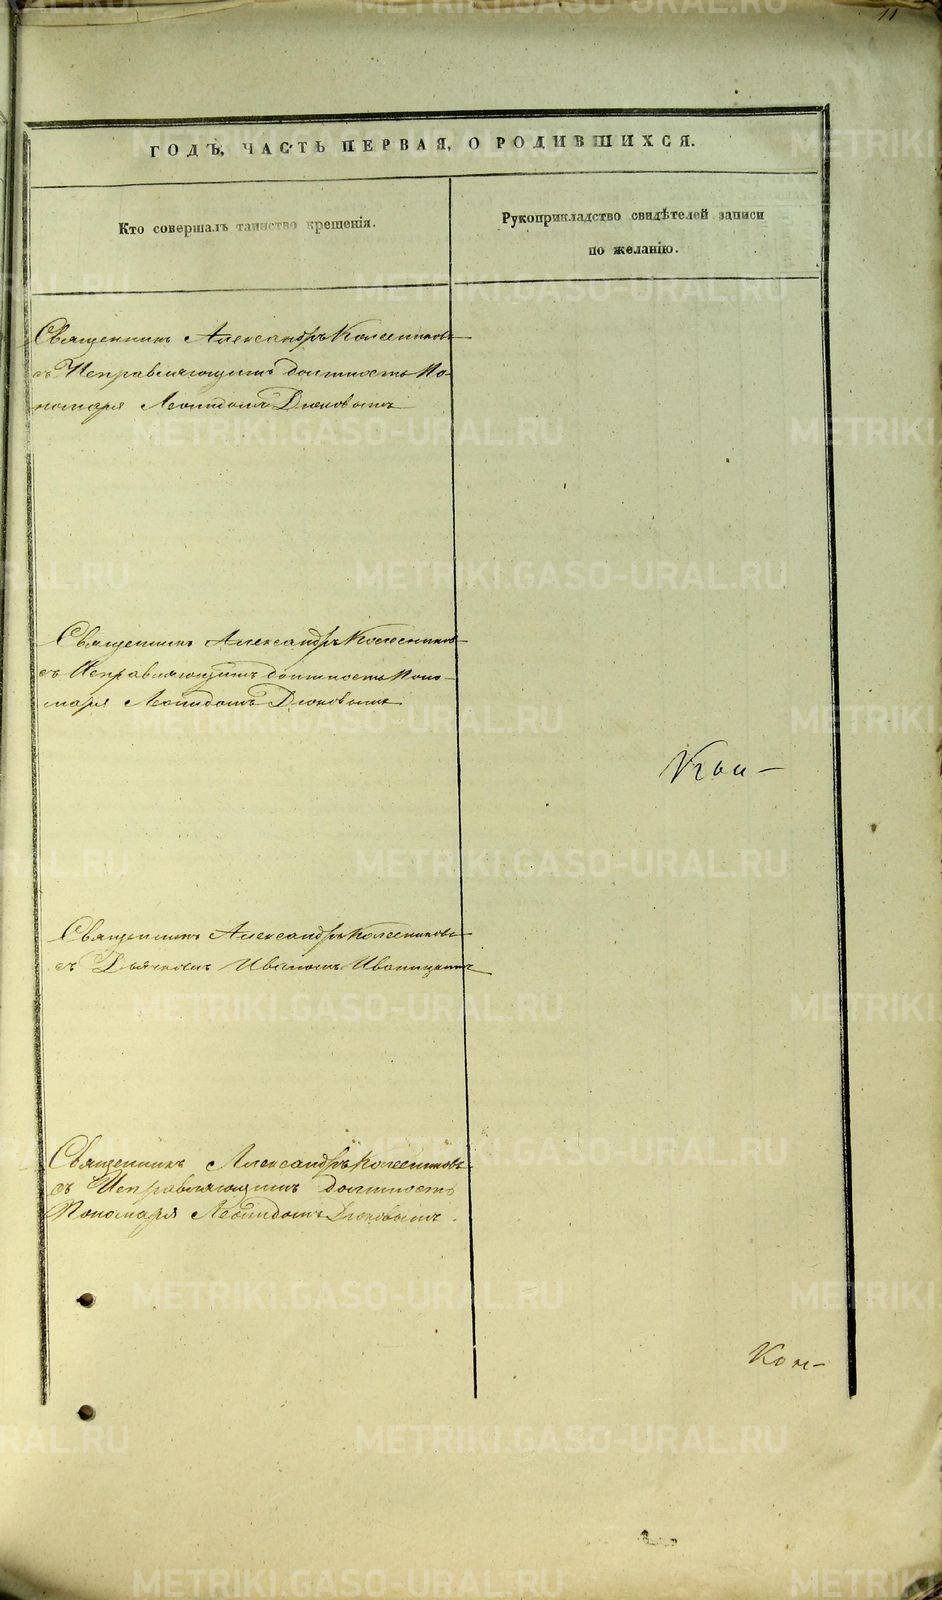 11
ГОДЪ, ЧАСТЬ ПЕРВАЯ, О РОДИВШИХСЯ.
Кто совершалъ таинство крещенія.
Рукоприкладство свидѣтелей записи
по желанію.
Священникъ Александръ Колесниковъ
съ Исправляющимъ должность По-
номаря Леонидомъ Дюковымъ
Священникъ Александръ Колесниковъ
съ Исправляющимъ должность Поно-
маря Леонидомъ Дюковымъ
Священникъ Александръ Колесниковъ
съ Дьячкомъ Иваномъ
Священникъ Александръ Колесниковъ
съ Исправляющимъ должность
Пономаря Леонидомъ Дюковымъ.
METRIKI.GASO-URAL.RU